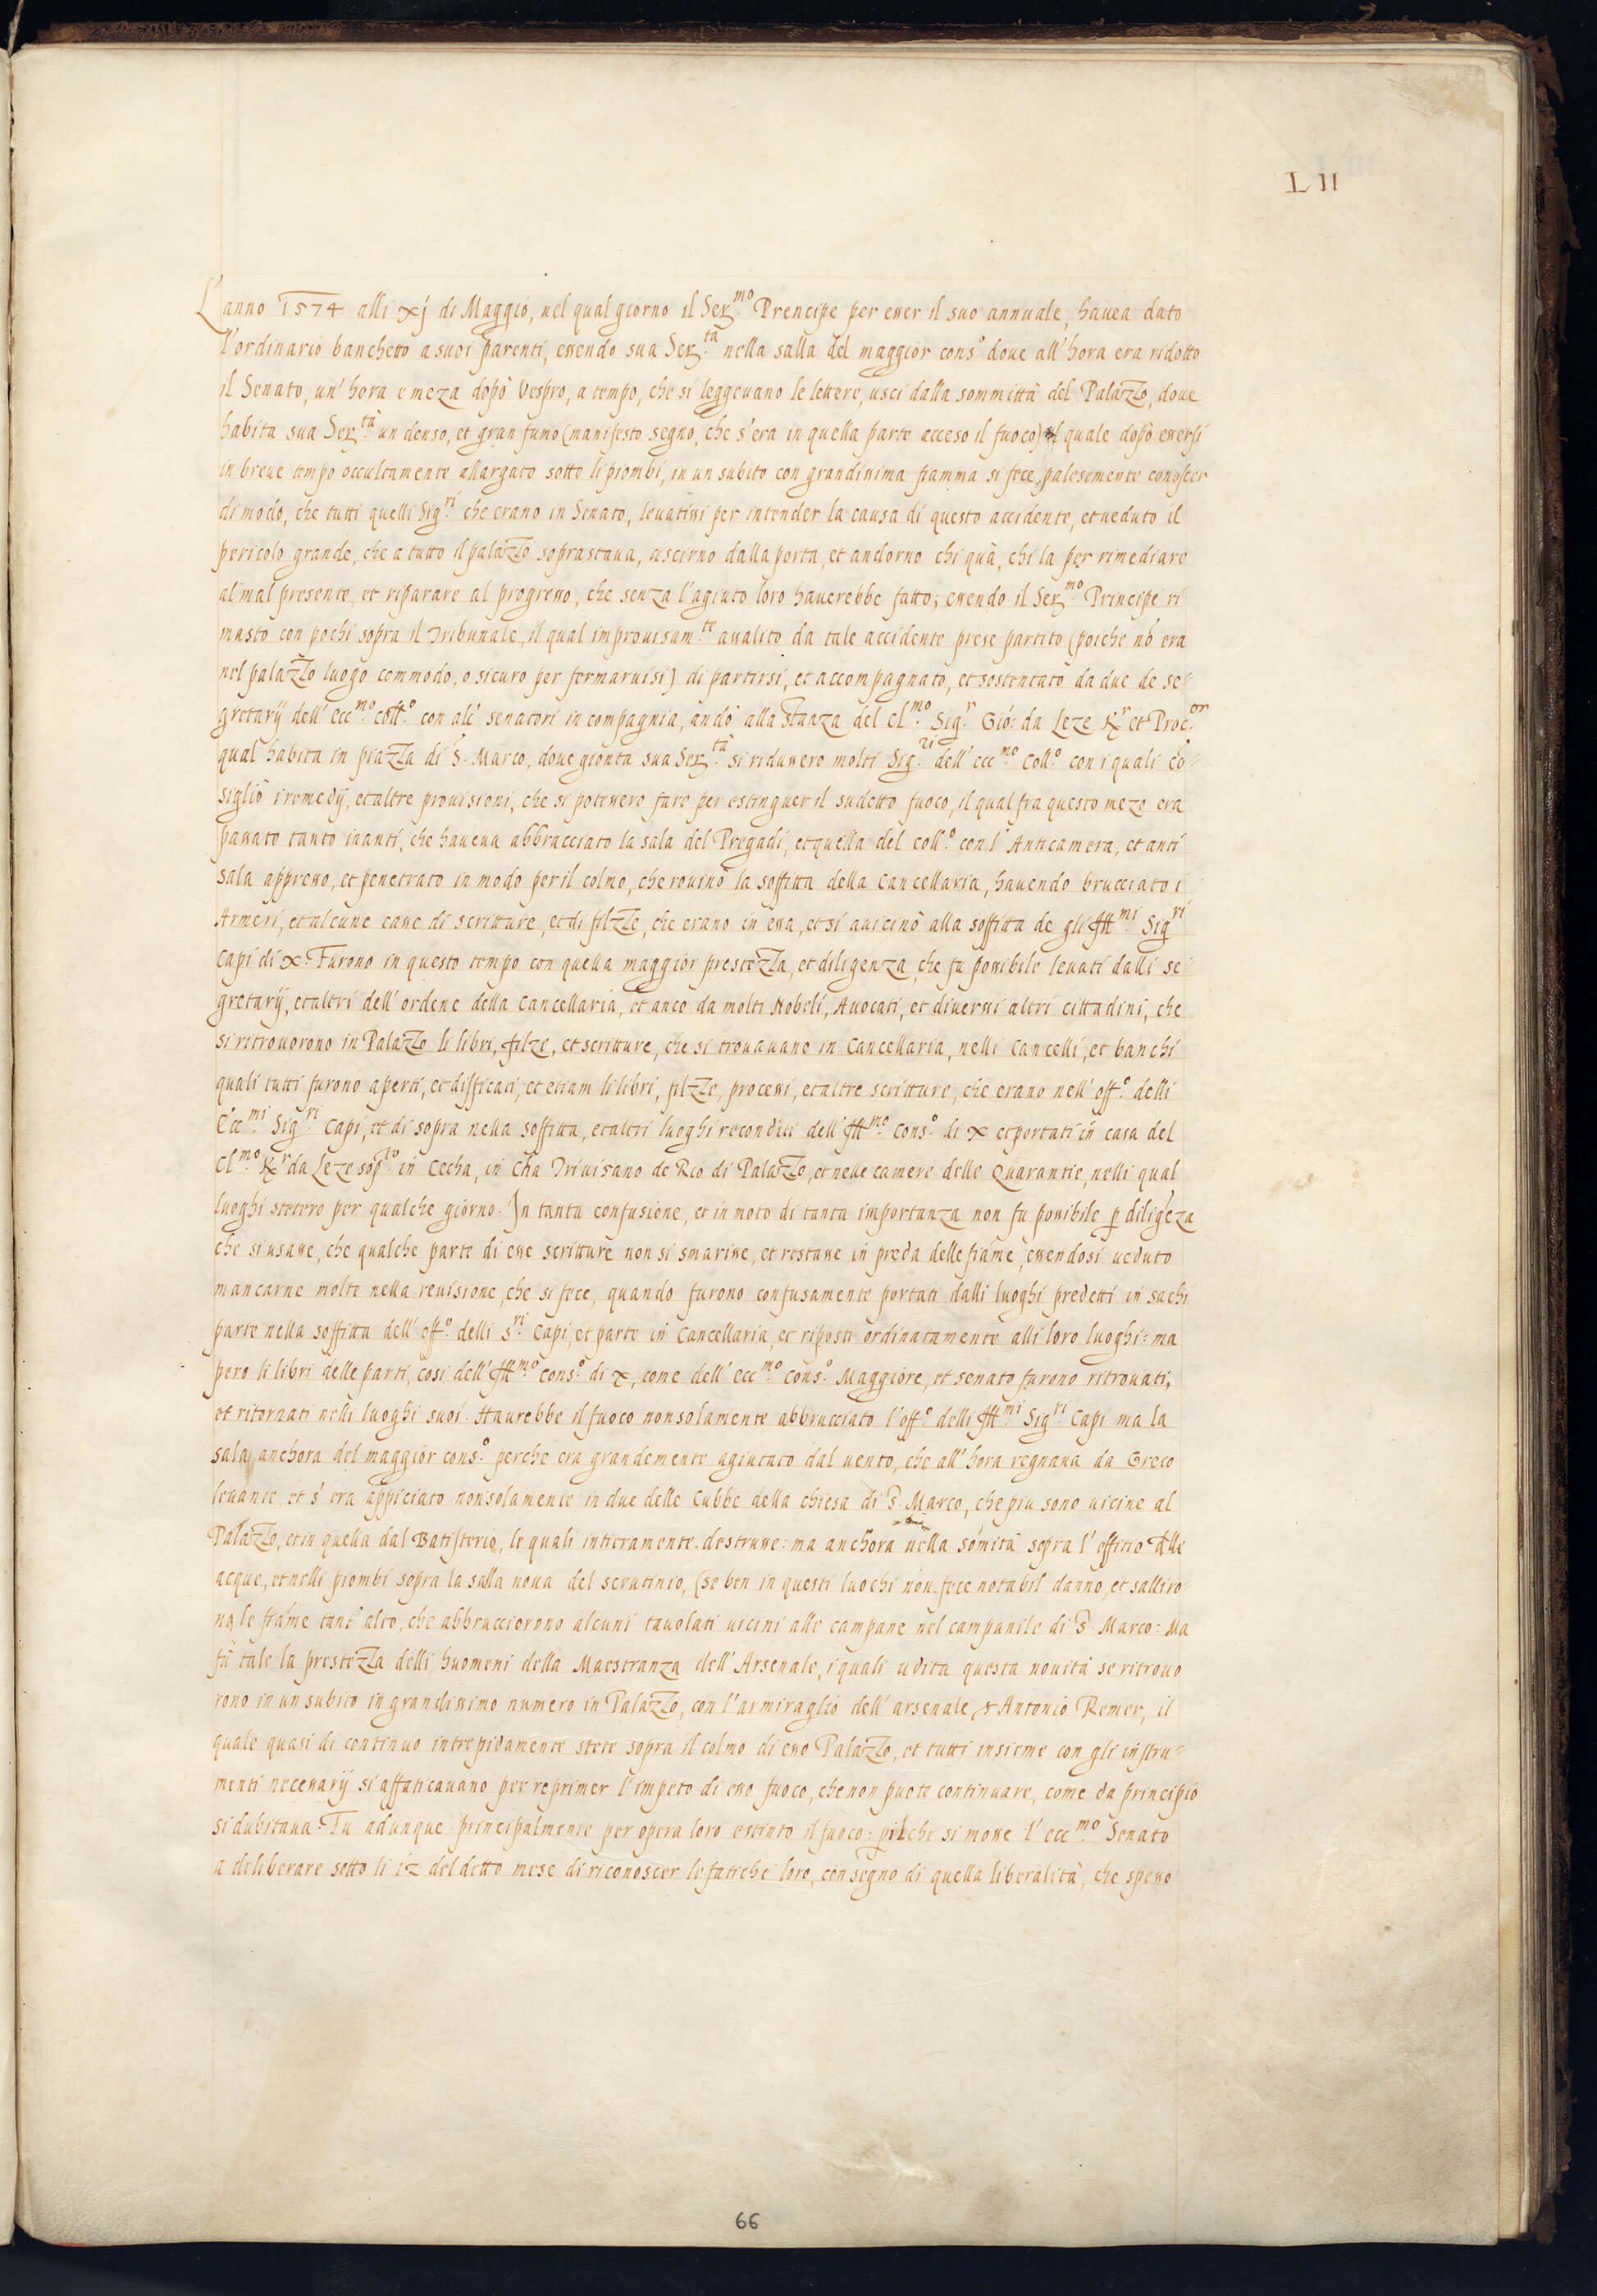 L II
L'anno 1574 alli xj di Maggio, nel qual giorno il Ser.mo Prencipe per esser il suo annuale, hauea dato
l'ordinario banchetto a suoi parenti, essendo sua Ser.tà nella salla del maggior cons.o doue all'hora era ridotto
il Senato, un'hora e meza dopò Vespro, a tempo, che si leggeuano le lettere, uscì dalla sommittà del Palazzo, doue
habita sua Ser.tà un denso, et gran fumo (manifesto segno, che s'era in quella parte acceso il fuoco) il quale dopò essersi
in breue tempo occultamente allargato sotto li piombi, in un subito con grandissima fiamma si fece palesemente conoscer
di modo, che tutti quelli Sig.ri che erano in Senato, leuatissi per intender la causa di questo accidente, et ueduto il
pericolo grande, che a tutto il palazzo soprastaua, uscirno dalla porta, et andorno chi quà, chi la per rimediare
al mal presente, et riparare al progresso, che senza l'agiuto loro hauerebbe fatto; essendo il Ser.mo Principe ri
masto con pochi sopra il Tribunale, il qual improuisam.te assalito da tale accidente prese partito (poiche nō era
nel palazzo luogo commodo, o sicuro per fermaruisi) di partirsi, et accompagnato, et sostentato da due de se-
gretarij dell' ecc.mo Coll.o con alc' senatori in compagnia, andò alla stanza del Cl.mo Sig.r Giō: da Leze K.r et Proc.or
qual habita in piazza di S. Marco, doue gionta sua Ser.tà si ridussero molti Sig.ri dell' ecc.mo Coll.o con i quali cō-
sigliò i remedij, et altre prouisioni, che si potessero fare per estinguer il sudetto fuoco, il qual fra questo mezo era
passato tanto inanti, che haueua abbracciato la sala del Pregadi, et quella del coll.o con l' Anticamera, et anti
sala appresso, et penetrato in modo per il colmo, che rouinò la soffitta della Cancellaria, hauendo brucciato i
Armeri, et alcune casse di scritture, et di filzze, che erano in essa, et si auicinò alla soffitta de gli Ill.mi Sig.ri
Capi di x. Furono in questo tempo con quella maggior prestezza, et diligenza, che fu possibile leuati dalli se-
gretarij, et altri dell' ordene della Cancellaria, et anco da molti Nobeli, Auocati, et diuersi altri cittadini, che
si ritrouorono in Palazzo li libri, filze, et scritture, che si trouauano in Cancellaria, nelli Cancelli, et banchi
quali tutti furono aperti, et disficati, et etiam li libri, filzze, processi, et altre scritture, che erano nell' off.o delli
Ecc.mi Sig.ri Capi, et di sopra nella soffitta, et altri luoghi reconditi dell' Ill.mo Cons.o di x et portati in casa del
Cl.mo K.r da Leze sop.to in Cecha, in Cha Triuisano de Rio di Palazzo, et nelle camere delle Quarantie, nelli qual
luoghi stetero per qualche giorno. In tanta confusione, et in moto di tanta importanza non fu possibile p diligēza
che si usasse, che qualche parte di esse scritture non si smarisse, et restasse in preda delle fiāme, essendosi ueduto
mancarne molte nella reuisione, che si fece, quando furono confusamente portati dalli luoghi predetti in sachi
parte nella soffitta dell' off.o delli S.ri Capi, et parte in Cancellaria, et riposti ordinatamente alli loro luoghi: ma
pero li libri delle parti, cosi dell' Ill.mo Cons.o di x, come dell' ecc.mo Cons.o Maggiore, et senato furono ritrouati,
et ritornati nelli luoghi suoi. Haurebbe il fuoco non solamente abbrucciato l'off.o delli Ill.mi Sig.ri Capi ma la
sala anchora del maggior Cons.o perche era grandemente agiutato dal uento, che all'hora regnaua da Greco
leuante, et s'era appiciato non solamente in due delle Cubbe della chiesa di S. Marco, che piu sono uicine al
Palazzo, et in quella dal Batisterio, le quali intieramente destrusse: ma anchora nella sōmità sopra l'officio delle
acque, et nelli piombi sopra la salla noua del scrutinio, (se ben in questi luochi non fece notabil danno, et salliro-
no le fiāme tant' alto, che abbrucciorono alcuni tauolati uicini alle campane nel campanile di S. Marco: Ma
fù tale la prestezza delli huomeni della Maestranza dell' Arsenale, i quali udita questa nouità se ritrouo
rono in un subito in grandissimo numero in Palazzo, con l'armiraglio dell' arsenale, s Antonio Remer, il
quale quasi di continuo intrepidamente stete sopra il colmo di esso Palazzo, et tutti insieme con gli instru-
menti necessarij si affaticauano per reprimer l'impeto di esso fuoco, che non puote continuare, come da principio
si dubitaua. Fu adunque principalmente per opera loro estinto il fuoco: pilche si mosse l' ecc.mo Senato
a deliberare sotto li 12 del detto mese di riconoscer le fatiche loro, con segno di quella liberalità, che spesso
66